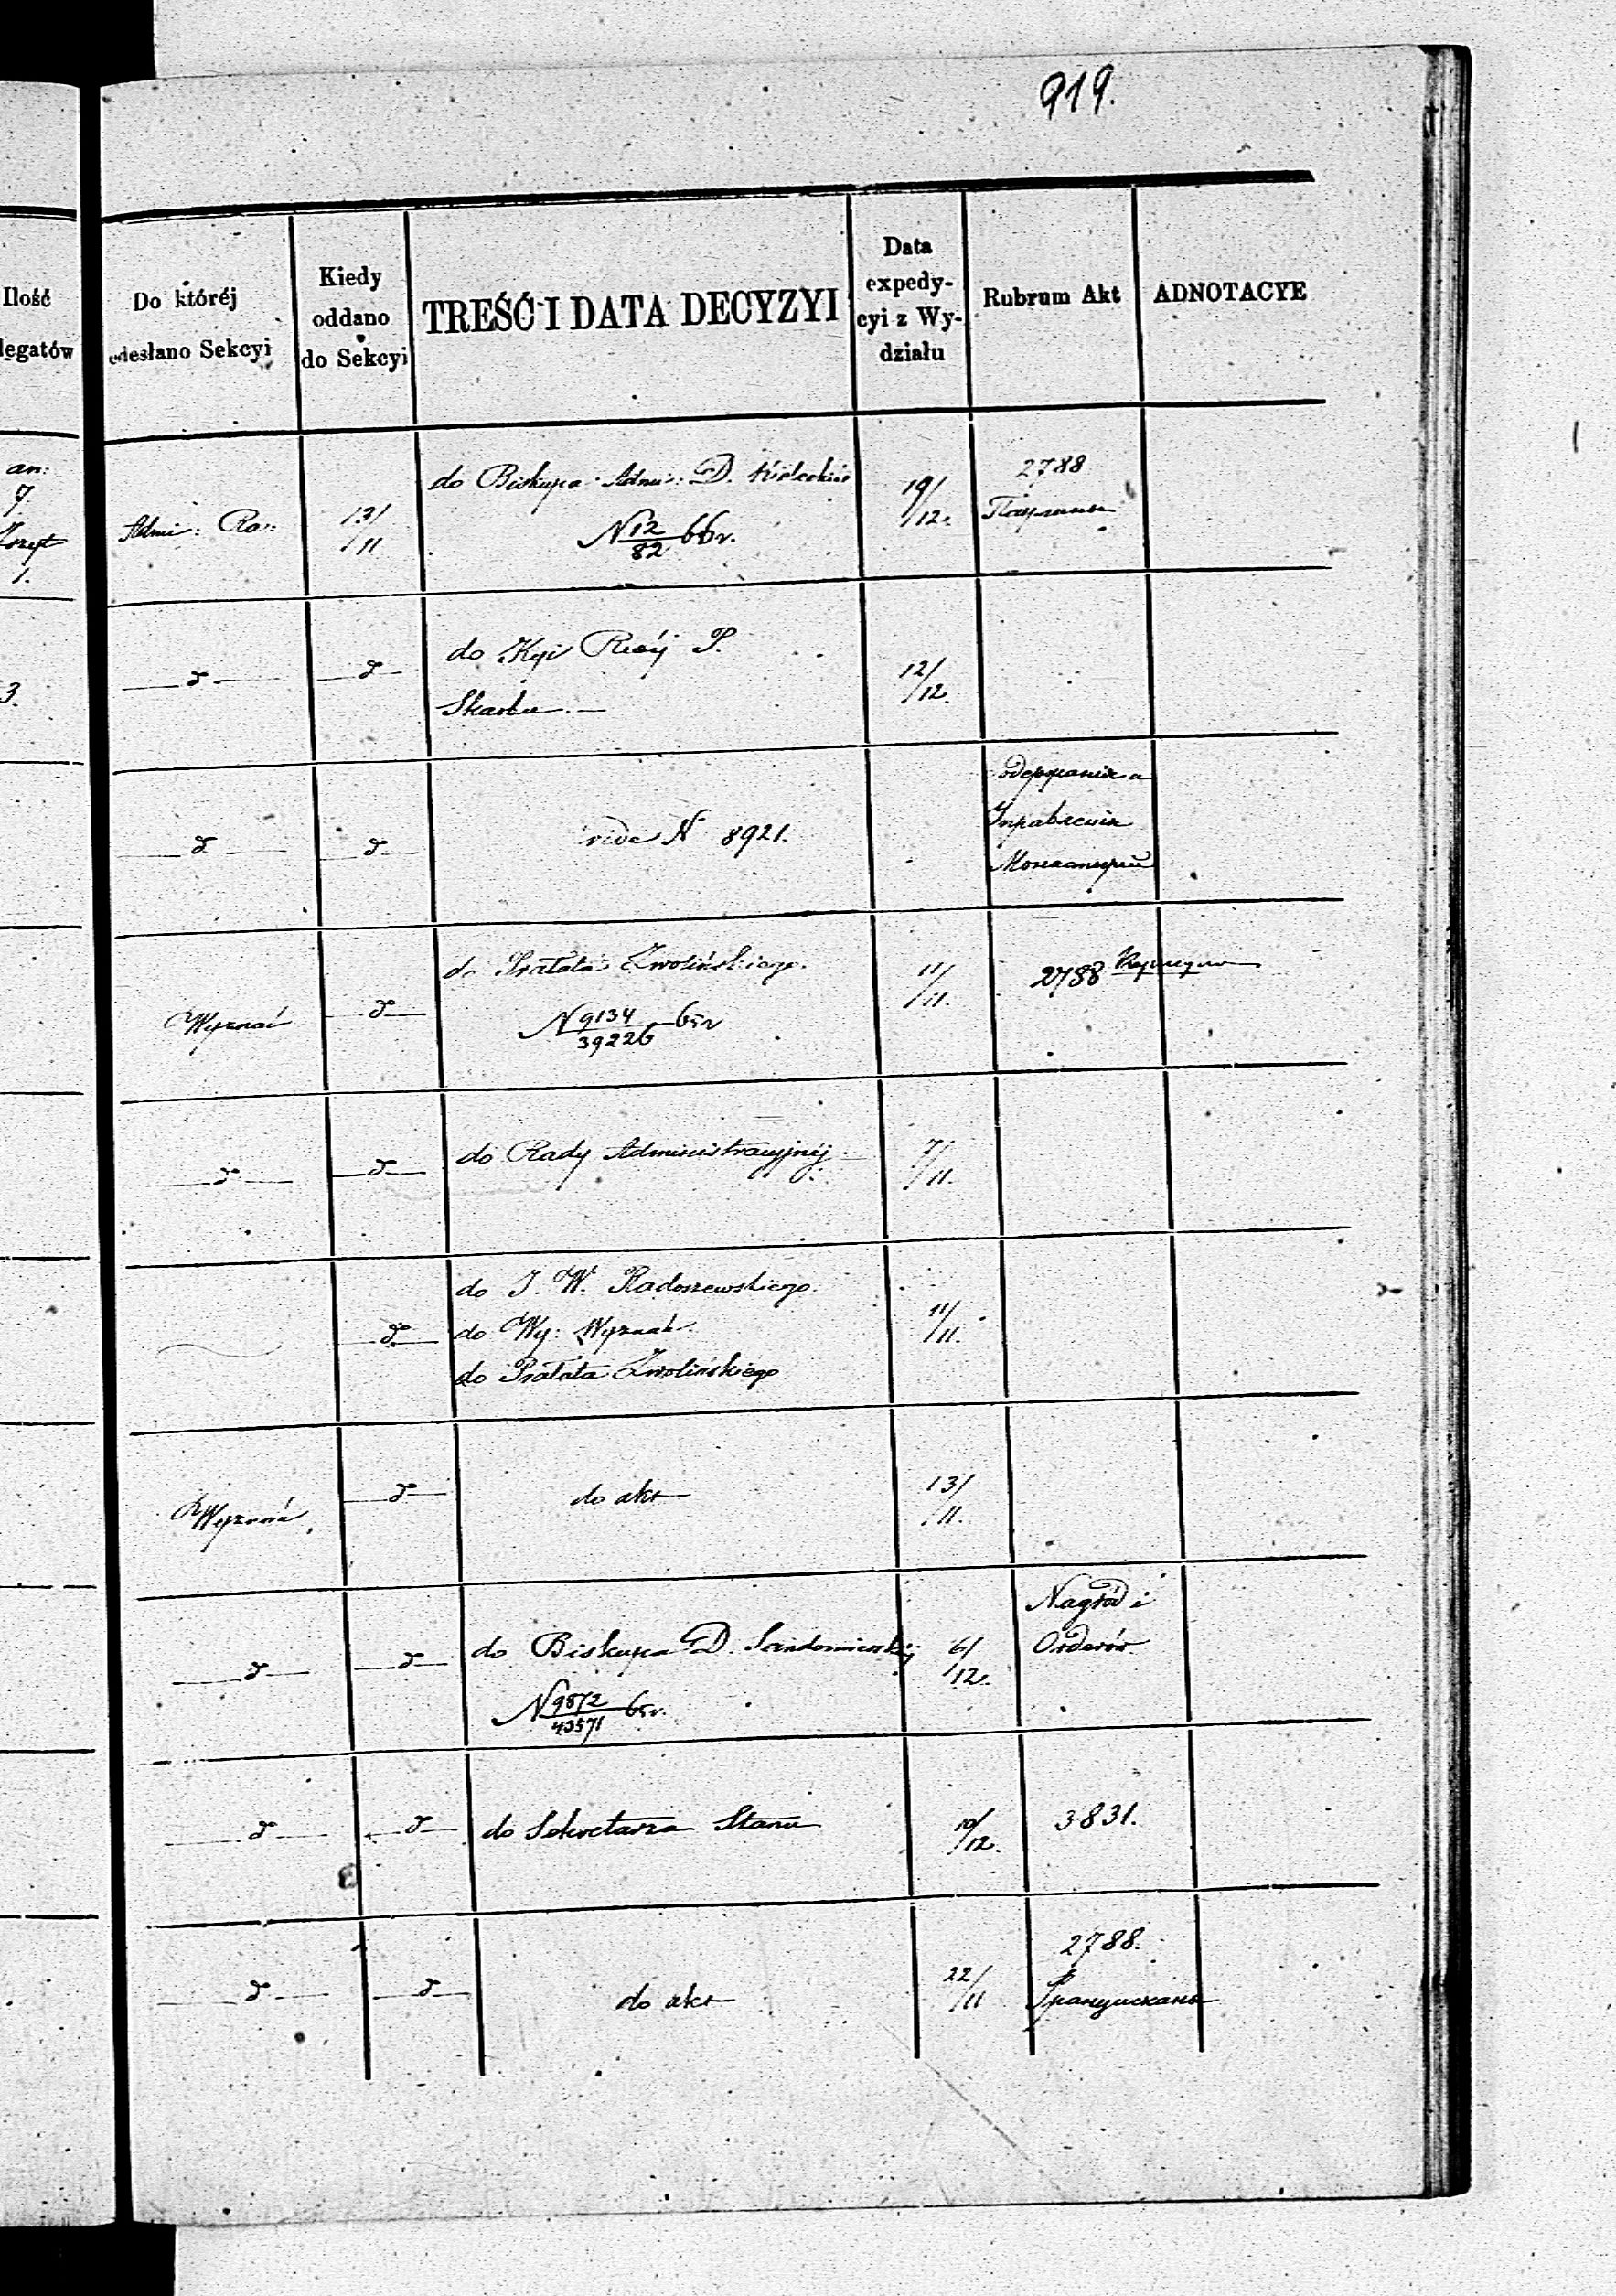 919.
Ilość
legatów
Do któréj
odesłano Sekcyi
Kiedy
oddano
do Sekcyi
TREŚĆ I DATA DECYZYI
Data
expedy-
cyi z Wy-
działu
Rubrum Akt
ADNOTACYE
an:
7.
1.
Admi: Ra:
13/
/11
do Biskupa Admi: D. Kieleckiéj
N 12/82 66 r.
19/
/12.
2788
3.
d
d
do Kyi Rzéj P.
Skarbu.—
12/
/12.
d
d
vide N 8921.
Монастырей
Wyznań
d
do Prałata Zwolińskiego.
N 9134/39226 65 r
11/
/11.
2788
d
d
do Rady Administracyjnéj
7/
/11.
d
do J. W. Radoszewskiego.
do Wy: Wyznań.
do Prałata Zwolińskiego
11/
/11.
Wyznań
d
do akt
13/
/11.
d
d
do Biskupa D. Sandomierskiéj
N 9872/43571 65 r.
6/
/12.
Nagród i
Orderów
d
d
do Sekretarza Stanu
10/
/12.
3831.
d
d
do akt
22/
/11
2788.
Францискане